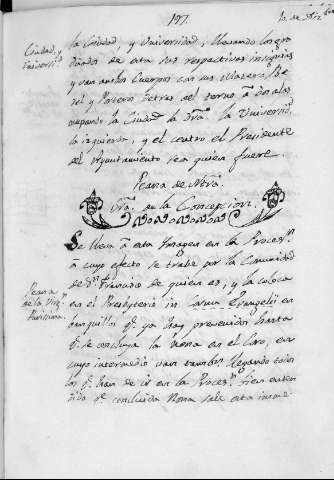 197.
Ciudad, y
Universid.d
la Ciudad, y Universidad, llevando los gra
duados de esta sus respectivas insignias
y van ambos Cuerpos con sus Maceros, Be
del y Portero detras del terno à dos alas
ocupando la Ciudad la dra. la Universid.
la izquierda, y el centro el Presidente
del Ayuntamiento sea quien fuere.
Peana de Ntra.
Sra. de la Concepcion.
Peana
de la Virg.n
Purisima.
Se lleva à esta Imagen en la Proces.n
à cuyo efecto se trahe por la Comunidad
de S.n Francisco de quien es, y la coloca
en el Presbyterio in cornu Evangelii en
banquillos q.e ya hay prevenidos hasta
q.e se concluya la Nona en el Coro, en
cuyo intermedio van tambien llegando todos
los q.e han de ir en la Proces.n bien enten
dido q.e concluida Nona sale esta inme-